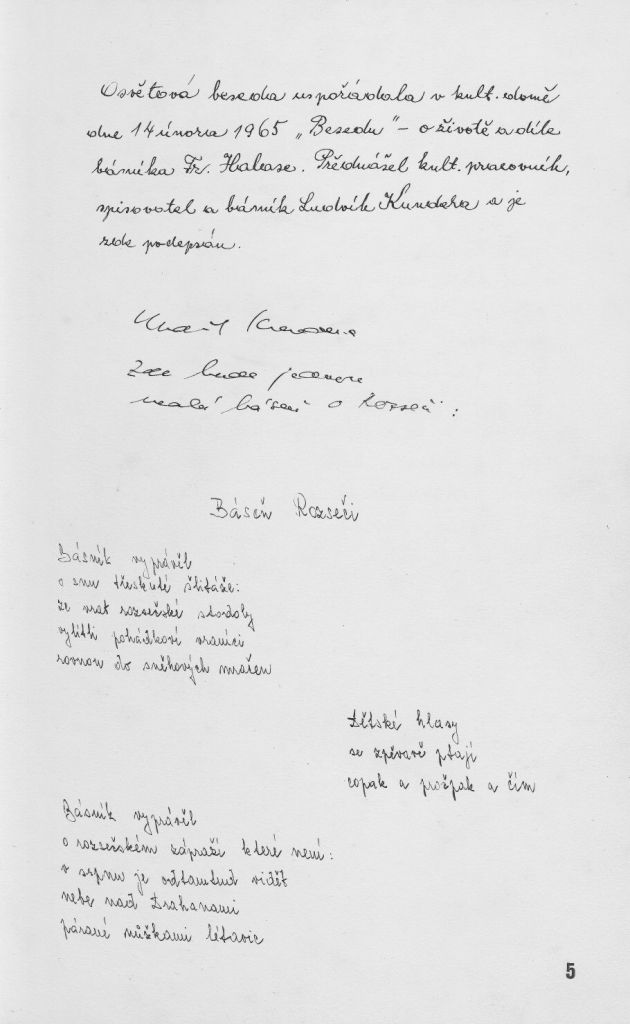 Osvětová beseda uspořádala v kult. domě
dne 14 února 1965 „Besedu" – o životě a díle
básníka Fr. Halase. Přednášel kult. pracovník,
spisovatel a básník Ludvík Kundera a je
zde podepsán.
Ludvík Kundera
Zde bude jednou
malá báseň o Rozseči:
Báseň Rozseči
Básník vyprávěl
o snu třeskuté
že vrat rozsečské stodoly
vylítli pohádkoví vraníci
rovnou do sněhových mračen
Dětské hlasy
se zpěvavě ptají
copak a pročpak a čím
Básník vyprávěl
o rozsečském zápraží které není:
v srpnu je odtamtud vidět
nebe nad Drahanami
párané nůžkami létavic
5